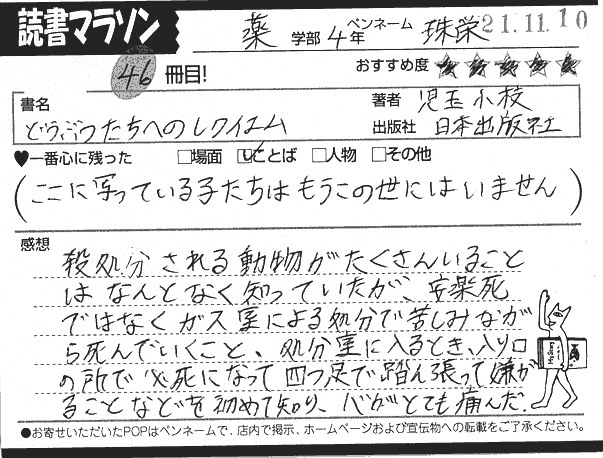 読書マラソン
薬 学部 4年 ペンネーム 珠栄 21.11.10
46 冊目! おすすめ度 ★★★★★
書名 どうぶつたちへのレクイエム
著者 児玉小枝
出版社 日本出版社
♥一番心に残った □場面 ☑ことば □人物 □その他
(ここに写っている子たちはもうこの世にはいません)
感想
殺処分される動物がたくさんいること
はなんとなく知っていたが、安楽死
ではなくガス室による処分で苦しみなが
ら死んでいくこと、処分室に入るとき、入り口
の所で必死になって四つ足で踏ん張って嫌が
ることなどを初めて知り、心がとても痛んだ。
●お寄せいただいたPOPはペンネームで、店内で掲示、ホームページおよび宣伝物への転載をご了承ください。